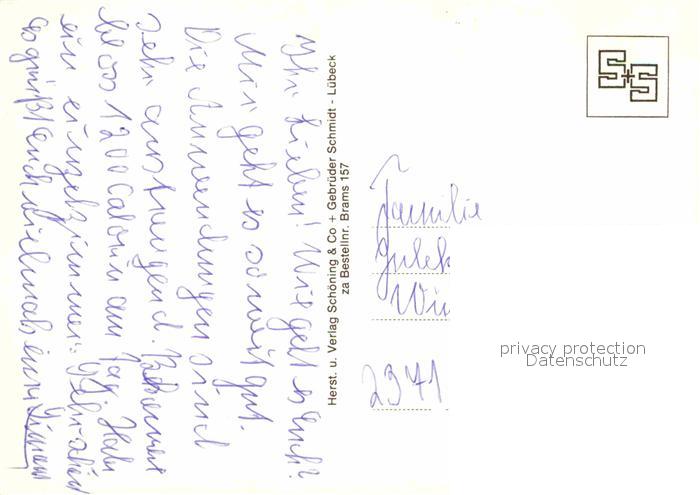 Ihr Lieben! Wie geht es Euch?
Mir geht es soweit gut.
Die Anwendungen sind
sehr anstrengend. Bekommen
bloss 1200 Calorien am Tag. Habe
ein einzelzimmer.
Es grüßt Euch vielmals eure
Herst. u. Verlag Schöning & Co + Gebrüder Schmidt - Lübeck
za Bestellnr. Brams 157
S+S
Familie
2371
privacy protection
Datenschutz